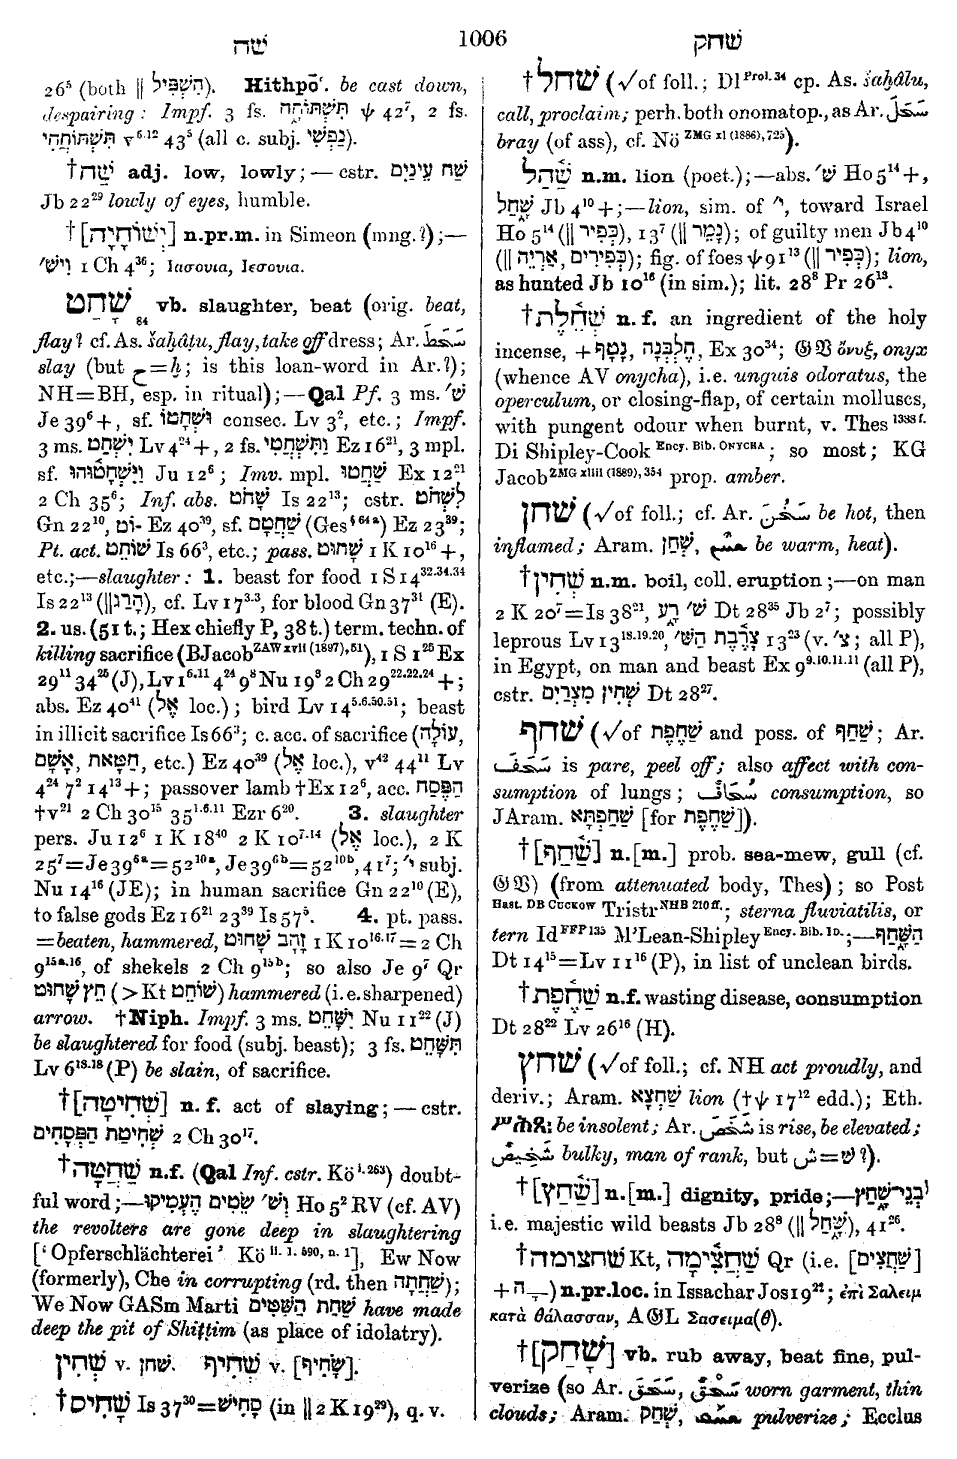 שׁה
1006
שׁחק
26⁵ (both ‖ הִשְׁפִּיל). Hithpōʿ. be cast down,
despairing: Impf. 3 fs. תִּשְׁתּוֹחָח ψ 42⁷, 2 fs.
תִּשְׁתּוֹחֲחִי v⁶·¹² 43⁵ (all c. subj. נַפְשִׁי).
†שַׁח adj. low, lowly;—cstr. שַׁח עֵינַיִם
Jb 22²⁹ lowly of eyes, humble.
†[יְשׁוֹחָיָה] n.pr.m. in Simeon (mng.?);—
וִישׁ׳ 1 Ch 4³⁶; Ιασουια, Ιεσουια.
שָׁחַט 84 vb. slaughter, beat (orig. beat,
flay? cf. As. šaḫâṭu, flay, take off dress; Ar. شحط
slay (but ح=ḫ; is this loan-word in Ar.?);
NH=BH, esp. in ritual);—Qal Pf. 3 ms. שׁ׳
Je 39⁶+, sf. וּשְׁחָטוֹ consec. Lv 3², etc.; Impf.
3 ms. יִשְׁחַט Lv 4²⁴+, 2 fs. וַתִּשְׁחֲטִי Ez 16²¹, 3 mpl.
sf. וַיִּשְׁחָטוּהוּ Ju 12⁶; Imv. mpl. שַׁחֲטוּ Ex 12²¹
2 Ch 35⁶; Inf. abs. שָׁחֹט Is 22¹³; cstr. לִשְׁחֹט
Gn 22¹⁰, ־וֹט Ez 40³⁹, sf. שַׁחֲטָם (Ges§ ⁶⁴ᵃ) Ez 23³⁹;
Pt. act. שׁוֹחֵט Is 66³, etc.; pass. שָׁחוּט 1 K 10¹⁶+,
etc.;—slaughter: 1. beast for food 1 S 14³²·³⁴·³⁴
Is 22¹³ (‖הָרַג), cf. Lv 17³·³, for blood Gn 37³¹ (E).
2. us. (51 t.; Hex chiefly P, 38 t.) term. techn. of
killing sacrifice (BJacob ZAW xvii (1897), 51), 1 S 1²⁵ Ex
29¹¹ 34²⁵ (J), Lv 1⁵·¹¹ 4²⁴ 9⁸ Nu 19³ 2 Ch 29²²·²²·²⁴+;
abs. Ez 40⁴¹ (אֶל loc.); bird Lv 14⁵·⁶·⁵⁰·⁵¹; beast
in illicit sacrifice Is 66³; c. acc. of sacrifice (עוֹלָה,
חַטָּאת, אָשָׁם, etc.) Ez 40³⁹ (אֶל loc.), v⁴² 44¹¹ Lv
4²⁴ 7² 14¹³+; passover lamb †Ex 12⁶, acc. הַפֶּסַח
†v²¹ 2 Ch 30¹⁵ 35¹·⁶·¹¹ Ezr 6²⁰. 3. slaughter
pers. Ju 12⁶ 1 K 18⁴⁰ 2 K 10⁷·¹⁴ (אֶל loc.), 2 K
25⁷=Je 39⁶ᵃ=52¹⁰ᵃ, Je 39⁶ᵇ=52¹⁰ᵇ, 41⁷; י׳ subj.
Nu 14¹⁶ (JE); in human sacrifice Gn 22¹⁰ (E),
to false gods Ez 16²¹ 23³⁹ Is 57⁵. 4. pt. pass.
=beaten, hammered, זָהָב שָׁחוּט 1 K 10¹⁶·¹⁷=2 Ch
9¹⁵ᵃ·¹⁶, of shekels 2 Ch 9¹⁵ᵇ; so also Je 9⁷ Qr
חֵץ שָׁחוּט (> Kt שׁוֹחֵט) hammered (i.e. sharpened)
arrow. †Niph. Impf. 3 ms. יִשָּׁחֵט Nu 11²² (J)
be slaughtered for food (subj. beast); 3 fs. תִּשָּׁחֵט
Lv 6¹⁸·¹⁸ (P) be slain, of sacrifice.
†[שְׁחִיטָה] n.f. act of slaying;—cstr.
שְׁחִיטַת הַפְּסָחִים 2 Ch 30¹⁷.
†שַׁחֲטָה n.f. (Qal Inf. cstr. Kö i. 263) doubt-
ful word;—וְשׁ׳ שֵׂטִים הֶעְמִיקוּ Ho 5² RV (cf. AV)
the revolters are gone deep in slaughtering
[‘Opferschlächterei’ Kö ii. 1. 590, n. 1], Ew Now
(formerly), Che in corrupting (rd. then שַׁחֲתָה);
We Now GASm Marti שַׁחַת הַשִּׁטִּים have made
deep the pit of Shiṭṭim (as place of idolatry).
שְׁחִין v. שׁחן. שָׁחִיף v. [שָׂחִיף].
†שָׁחִים Is 37³⁰=סָחִישׁ (in ‖ 2 K 19²⁹), q. v.
†שׁחל (√of foll.; Dl Prol. 34 cp. As. šaḫâlu,
call, proclaim; perh. both onomatop., as Ar. سحل
bray (of ass), cf. Nö ZMG xl (1886), 725).
שַׁחַל n.m. lion (poet.);—abs. שׁ׳ Ho 5¹⁴+,
שָׁחַל Jb 4¹⁰+;—lion, sim. of י׳, toward Israel
Ho 5¹⁴ (‖ כְּפִיר), 13⁷ (‖ נָמֵר); of guilty men Jb 4¹⁰
(‖ אַרְיֵה, כְּפִירִים); fig. of foes ψ 91¹³ (‖ כְּפִיר); lion,
as hunted Jb 10¹⁶ (in sim.); lit. 28⁸ Pr 26¹³.
†שְׁחֵלֶת n.f. an ingredient of the holy
incense, + נָטָף, חֶלְבְּנָה, Ex 30³⁴; 𝔊 𝔙 ὄνυξ, onyx
(whence AV onycha), i.e. unguis odoratus, the
operculum, or closing-flap, of certain molluscs,
with pungent odour when burnt, v. Thes 1388 f.
Di Shipley-Cook Ency. Bib. Onycha; so most; KG
Jacob ZMG xliii (1889), 354 prop. amber.
שׁחן (√of foll.; cf. Ar. سخن be hot, then
inflamed; Aram. שְׁחֵן, ܫܚܢ be warm, heat).
†שְׁחִין n.m. boil, coll. eruption;—on man
2 K 20⁷=Is 38²¹, שׁ׳ רָע Dt 28³⁵ Jb 2⁷; possibly
leprous Lv 13¹⁸·¹⁹·²⁰, צָרֶבֶת הַשּׁ׳ 13²³ (v. צ׳; all P),
in Egypt, on man and beast Ex 9⁹·¹⁰·¹¹·¹¹ (all P),
cstr. שְׁחִין מִצְרַיִם Dt 28²⁷.
שׁחף (√of שַׁחֶפֶת and poss. of שַׁחַף; Ar.
سحف is pare, peel off; also affect with con-
sumption of lungs; سحاف consumption, so
JAram. שַׁחֲפְתָּא [for שַׁחֶפֶת]).
†[שַׁחַף] n.[m.] prob. sea-mew, gull (cf.
𝔊 𝔙) (from attenuated body, Thes); so Post
Hast. DB Cuckow Tristr NHB 210 ff.; sterna fluviatilis, or
tern Id FFP 135 M’Lean-Shipley Ency. Bib. ID.;—הַשָּׁחַף
Dt 14¹⁵=Lv 11¹⁶ (P), in list of unclean birds.
†שַׁחֶפֶת n.f. wasting disease, consumption
Dt 28²² Lv 26¹⁶ (H).
שׁחץ (√of foll.; cf. NH act proudly, and
deriv.; Aram. שַׁחֲצָא lion (†ψ 17¹² edd.); Eth.
be insolent; Ar. شخص is rise, be elevated;
شخيص bulky, man of rank, but ش=שׁ?).
†[שַׁחַץ] n.[m.] dignity, pride;—בְּנֵי־שָׁחַץ
i.e. majestic wild beasts Jb 28⁸ (‖ שָׁחַל), 41²⁶.
†שחצומה Kt, שַׁחֲצִימָה Qr (i.e. [שַׁחֲצִים]
+ ־ָה) n.pr.loc. in Issachar Jos 19²²; ἐπὶ Σαλειμ
κατὰ θάλασσαν, A 𝔊L Σασειμα(θ).
†[שָׁחַק] vb. rub away, beat fine, pul-
verize (so Ar. سحق, سحق worn garment, thin
clouds; Aram. שְׁחַק, ܫܚܩ pulverize; Ecclus